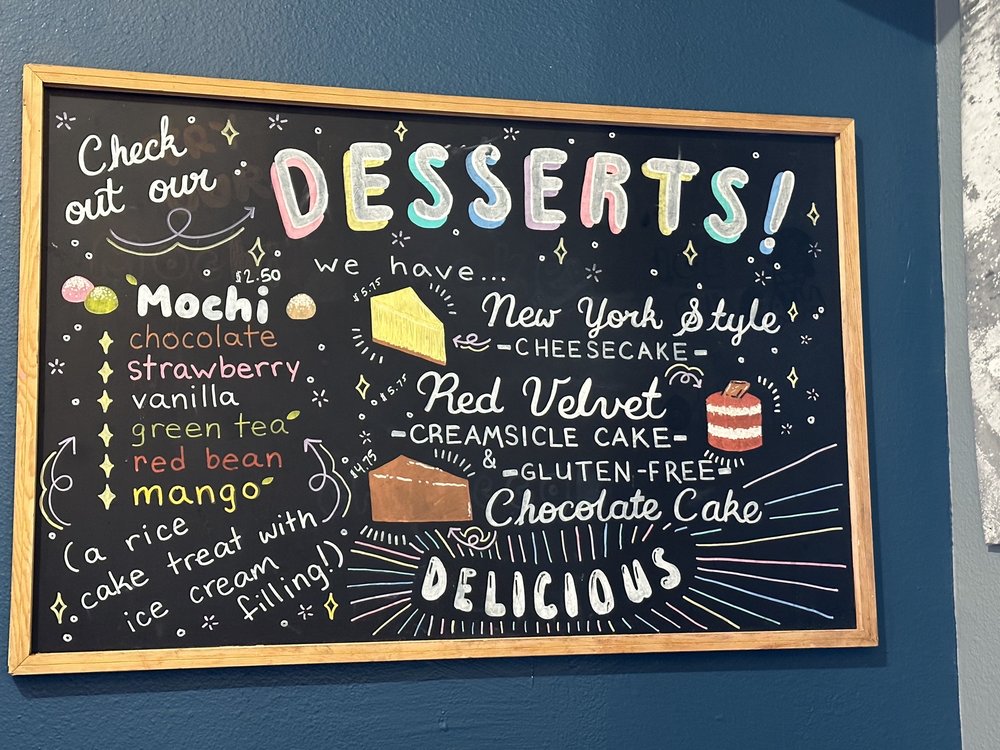 Check
out our
DESSERTS!
we have...
$2.50
Mochi
chocolate
strawberry
vanilla
green tea
red bean
mango
(a rice
cake treat with
ice cream
filling!)
$5.75
New York Style
-CHEESECAKE-
$5.75
Red Velvet
-CREAMSICLE CAKE-
&
$4.75
-GLUTEN-FREE-
Chocolate Cake
DELICIOUS